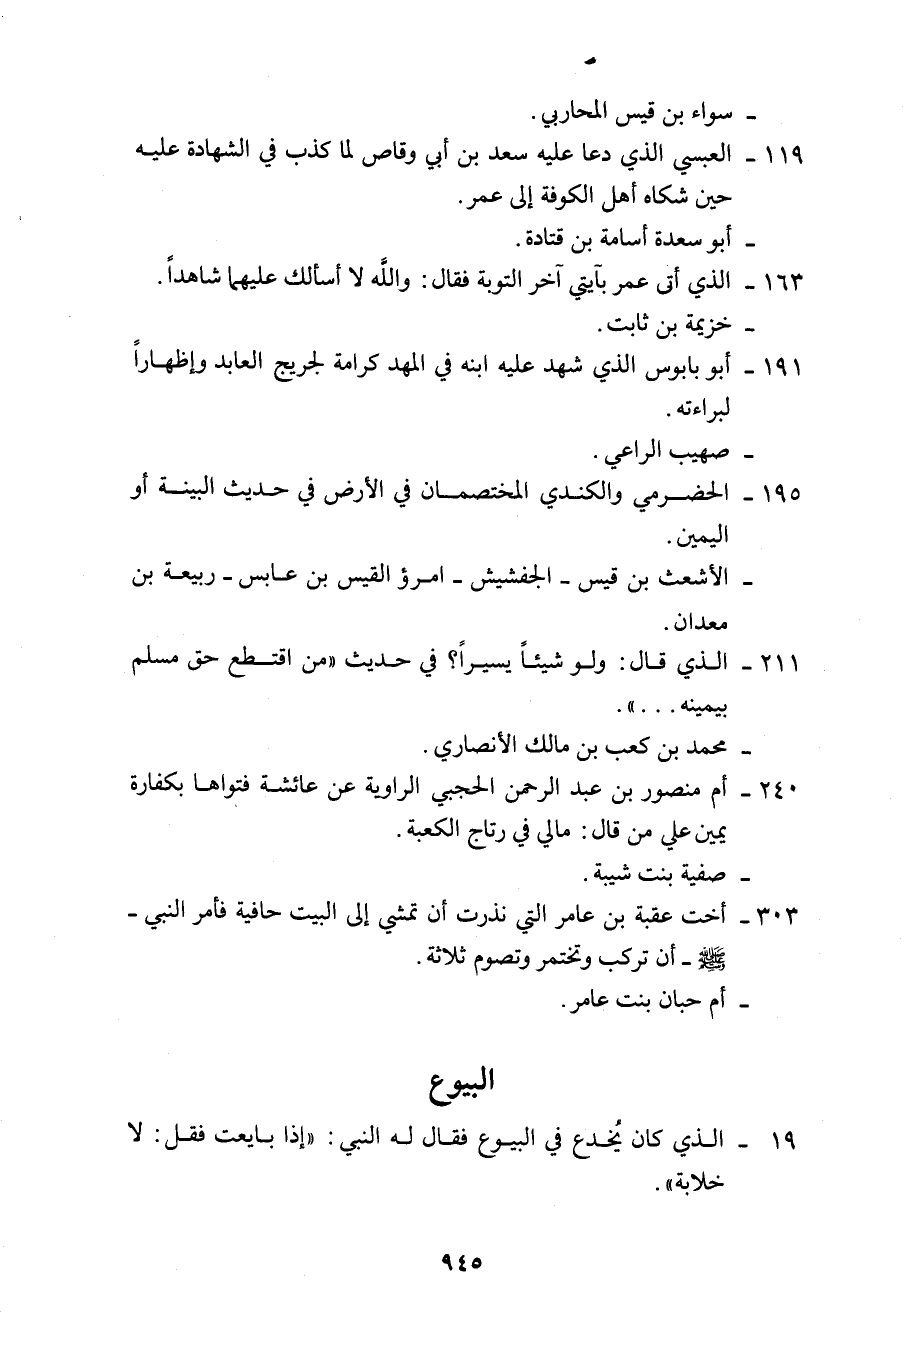 ـ سواء بن قيس المحاربي .
١١٩ ـ العبسي الذي دعا عليه سعد بن أبي وقاص لما كذب في الشهادة عليـه
حين شكاه أهل الكوفة إلى عمر .
ـ أبو سعدة أسامة بن قتادة .
١٦٣ ـ الذي أتى عمر بآيتي آخر التوبة فقال : واللَّه لا أسألك عليهما شاهداً .
ـ خزيمة بن ثابت .
١٩١ ـ أبو بابوس الذي شهد عليه ابنه في المهد كرامة لجريج العابد وإظهـاراً
لبراءته .
ـ صهيب الراعي .
١٩٥ ـ الحضـرمي والكنـدي المختصمـان في الأرض في حـديث البينـة أو
اليمين .
ـ الأشعث بن قيس ـ الجفشيش ـ امـرؤ القيس بن عـابس ـ ربيعـة بن
معدان .
٢١١ ـ الـذي قـال : ولـو شيئـاً يسيـراً؟ في حـديث «من اقتـطع حق مسلم
بيمينه . . .» .
ـ محمد بن كعب بن مالك الأنصاري .
٢٤٠ ـ أم منصور بن عبد الرحمن الحجبي الراوية عن عائشـة فتواهـا بكفارة
يمين علي من قال : مالي في رتاج الكعبة .
ـ صفية بنت شيبة .
٣٠٣ ـ أخت عقبة بن عامر التي نذرت أن تمشي إلى البيت حافية فأمر النبي ـ
ﷺ ـ أن تركب وتختمر وتصوم ثلاثة .
ـ أم حبان بنت عامر .
البيوع
١٩ ـ الـذي كان يُخـدع في البيـوع فقـال لـه النبي : «إذا بـايعت فقـل : لا
خلابة» .
٩٤٥